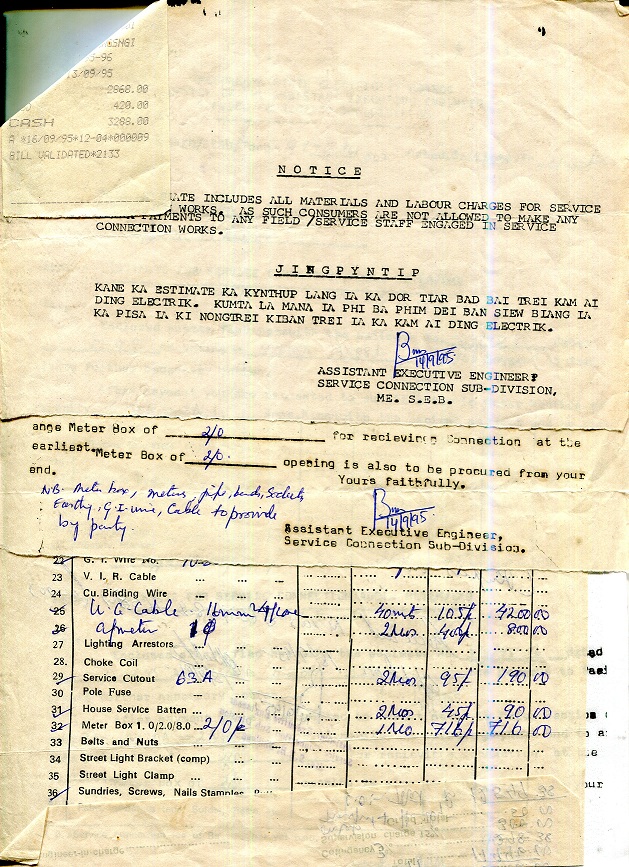 ENGI
-96
13/09/95
2868.00
420.00
CASH 3288.00
A *16/09/95*12-04*000009
BILL VALIDATED*2133
NOTICE
ATE INCLUDES ALL MATERIALS AND LABOUR CHARGES FOR SERVICE
WORKS. AS SUCH CONSUMERS ARE NOT ALLOWED TO MAKE ANY
PAYMENTS TO ANY FIELD /SERVICE STAFF ENGAGED IN SERVICE
CONNECTION WORKS.
JINGPYNTIP
KANE KA ESTIMATE KA KYNTHUP LANG IA KA DOR TIAR BAD BAI TREI KAM AI
DING ELECTRIK. KUMTA LA MANA IA PHI BA PHIM DEI BAN SIEW BIANG IA
KA PISA IA KI NONGTREI KIBAN TREI IA KA KAM AI DING ELECTRIK.
14/9/95
ASSISTANT EXECUTIVE ENGINEER,
SERVICE CONNECTION SUB-DIVISION,
ME. S.E.B.
ange Meter Box of 2/0 for recieving Connection at the
earliest.Meter Box of 2/0. opening is also to be procured from your
end.
Yours faithfully.
NB- Meter box, meters, pipe, bends, Sockets
Earthy, G.I. wire, Cable to provide
by party.
14/9/95
Assistant Executive Engineer,
Service Connection Sub-Division.
22 G. I. Wire No.
23 V. I. R. Cable ... ... ...
24 Cu. Binding Wire ... ...
25 U.G. Cable 16mm 40mt 105/- 4200 00
26 1Φ 2Nos 400/- 800 00
27 Lighting Arrestors ... ...
28. Choke Coil ... ... ...
29 Service Cutout 63A 2Nos 95/- 190 00
30 Pole Fuse ... ... ...
31 House Service Batten ... ... 2Nos 45/- 90 00
32 Meter Box 1. 0/2.0/8.0 ... 2/0/- 1No 716/- 716 00
33 Bolts and Nuts ... ...
34 Street Light Bracket (comp) ... ...
35 Street Light Clamp ... ...
36 Sundries, Screws, Nails Stamples